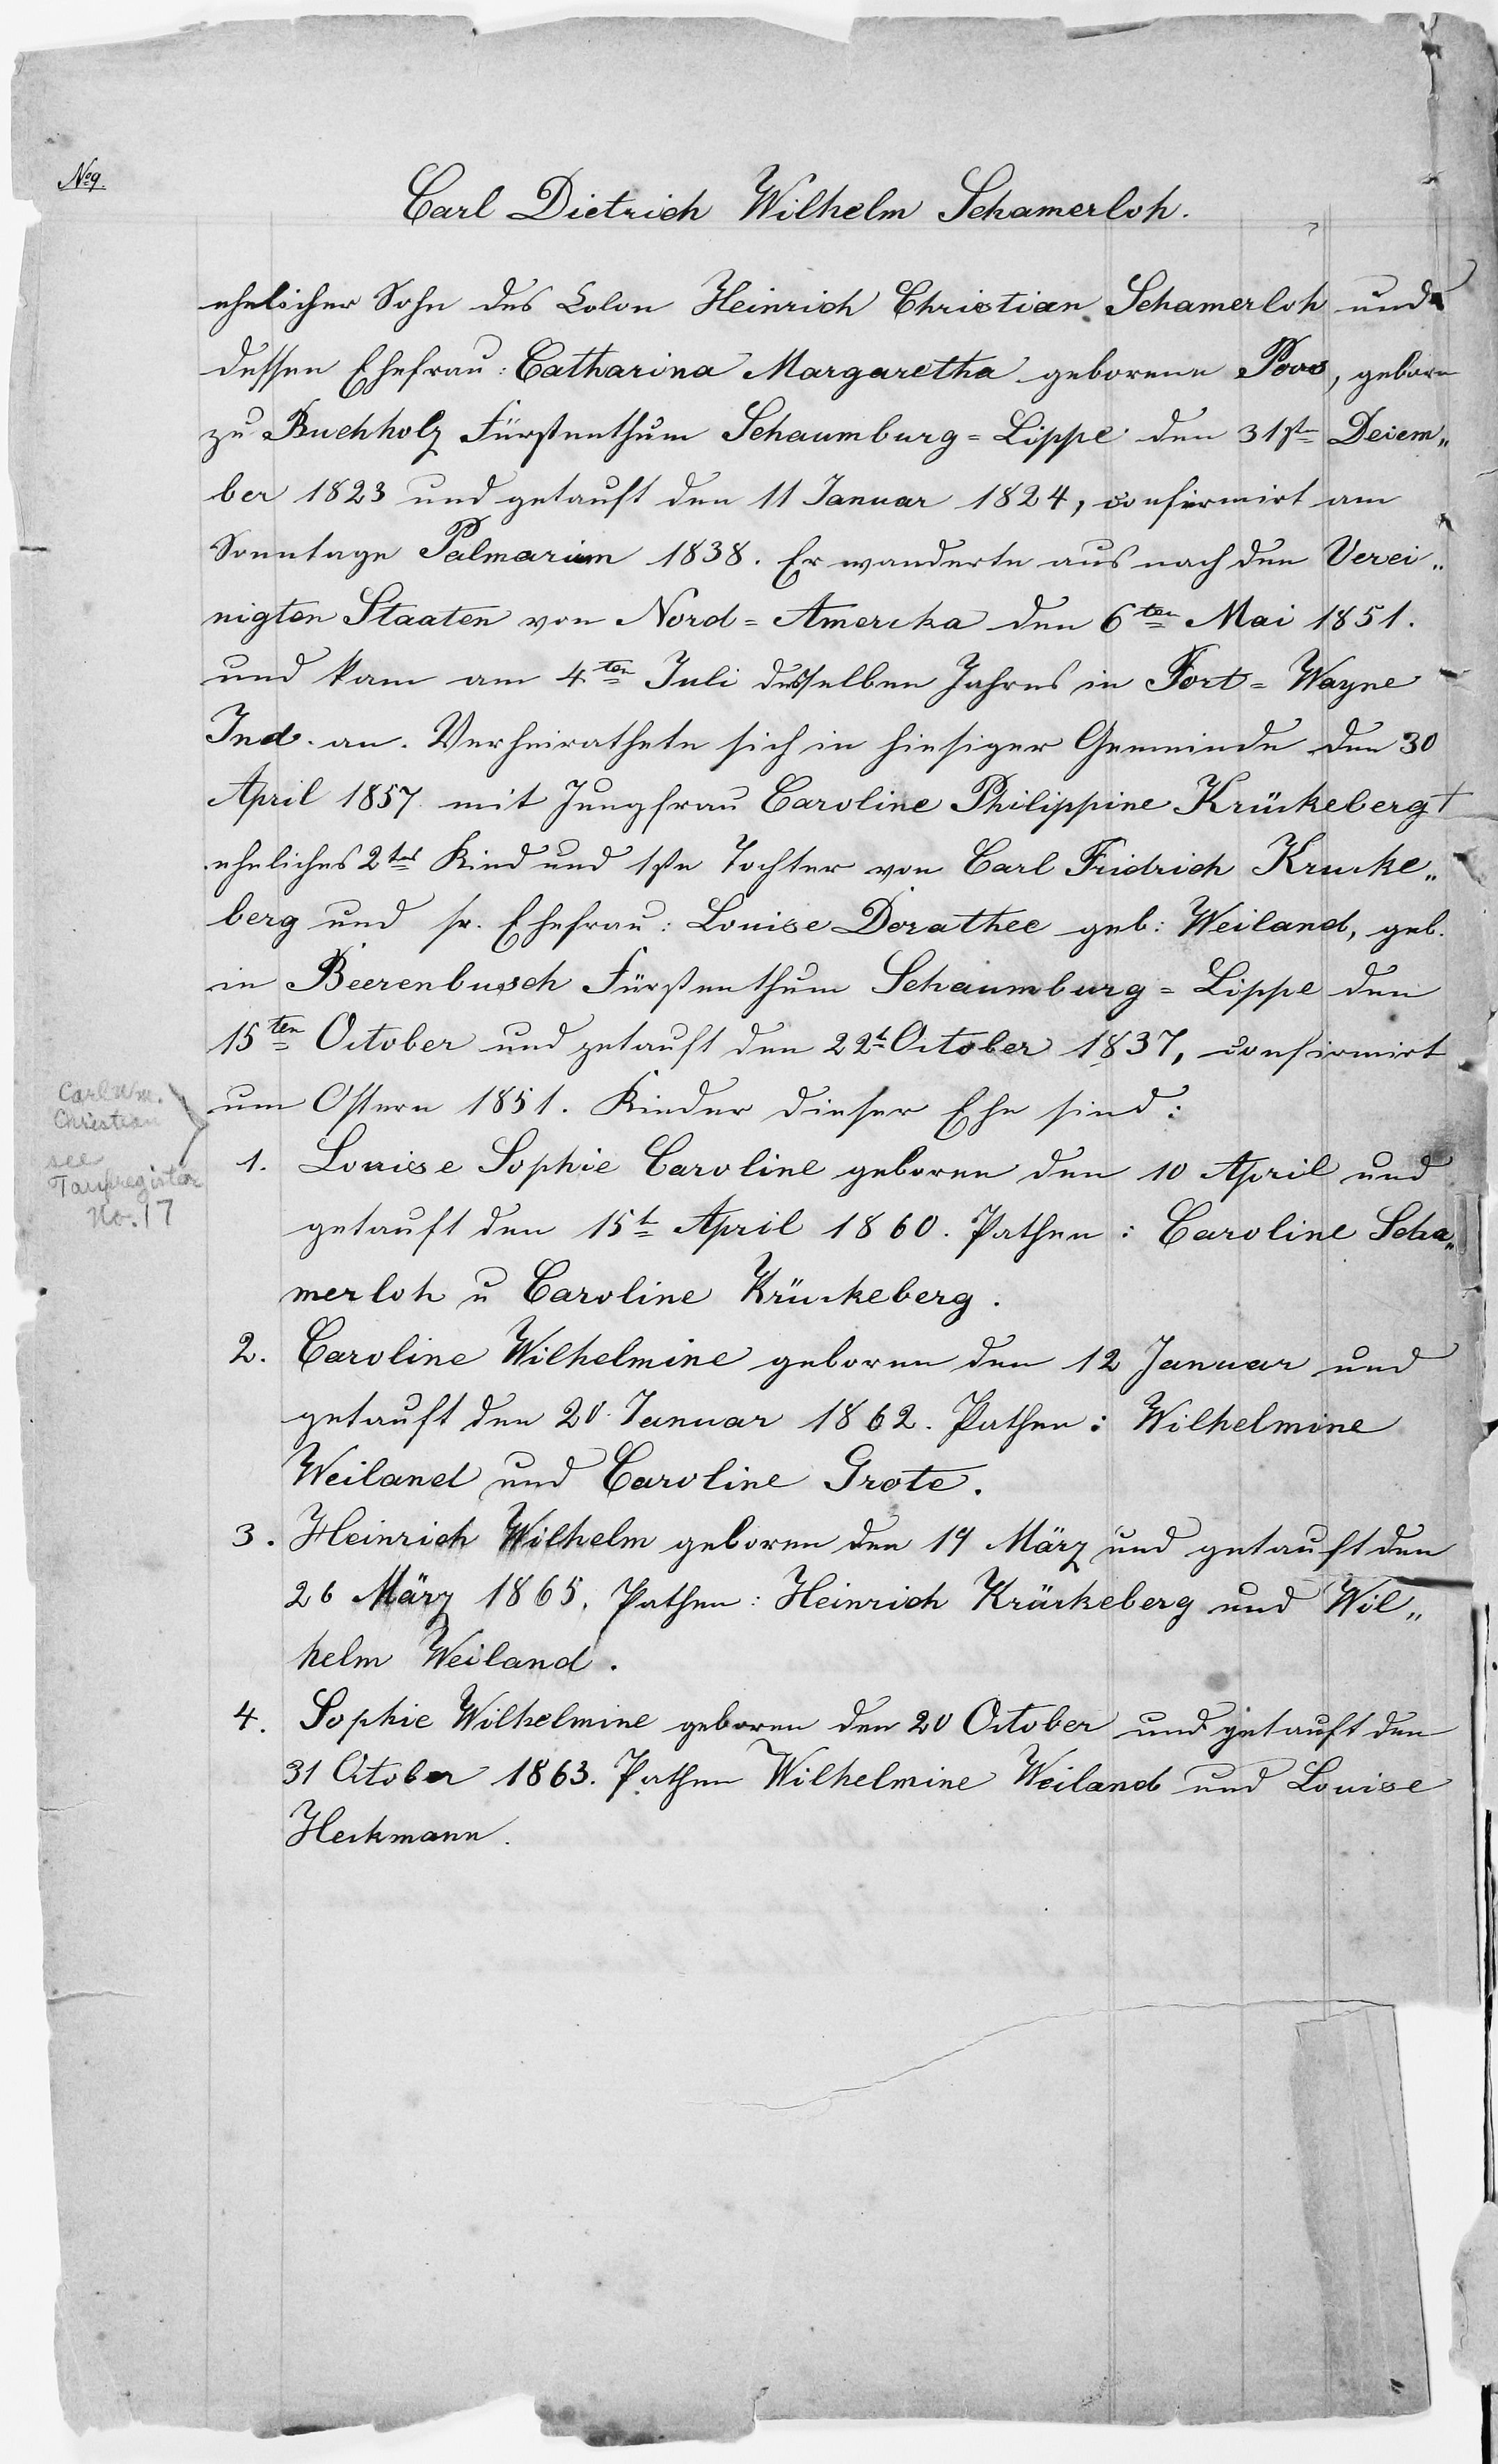 No 9.
Carl Dietrich Wilhelm Schamerloh.
ehelicher Sohn des Colon Heinrich Christian Schamerloh und
dessen Ehefrau: Catharina Margaretha geborene Poos, geboren
zu Buchholz Fürstenthum Schaumburg=Lippe den 31ste Decem„
ber 1823 und getauft den 11 Januar 1824, confirmirt am
Sonntage Palmarum 1838. Er wanderte aus nach den Verei„
nigten Staaten von Nord=Amerika den 6ten Mai 1851.
und kam am 4ten Juli desselben Jahres in Fort=Wayne
Ind. an. Verheirathete sich in hiesiger Gemeinde den 30
April 1857 mit Jungfrau Caroline Philippine Krückeberg †
eheliches 2tes Kind und 1ste Tochter von Carl Fridrich Krucke„
berg und sr. Ehefrau: Louise Dorathee geb: Weiland, geb.
in Beerenbusch Fürstenthum Schaumburg=Lippe den
15ten October und getauft den 22t October 1837, confirmirt
um Ostern 1851. Kinder dieser Ehe sind:
Carl Wm.
Christian
see
Taufregister
No. 17
1. Louise Sophie Caroline geboren den 10 April und
getauft den 15t April 1860. Pathen: Caroline Scha„
merloh u Caroline Krückeberg.
2. Caroline Wilhelmine geboren den 12 Januar und
getauft den 20. Januar 1862. Pathen: Wilhelmine
Weiland und Caroline Grote.
3. Heinrich Wilhelm geboren den 19 März und getauft den
26 März 1865. Pathen: Heinrich Krückeberg und Wil„
helm Weiland.
4. Sophie Wilhelmine geboren den 20 October und getauft den
31 October 1863. Pathen Wilhelmine Weiland und Louise
Heckmann.